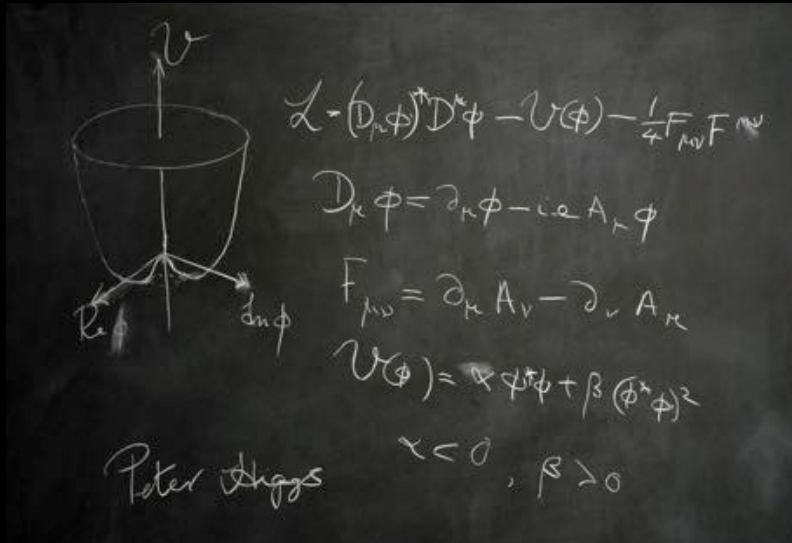 V
ℒ = (D_μ ϕ)* D^μ ϕ − V(ϕ) − ¼ F_μν F^μν
D_μ ϕ = ∂_μ ϕ − ie A_μ ϕ
F_μν = ∂_μ A_ν − ∂_ν A_μ
Re ϕ
Im ϕ
V(ϕ) = α ϕ*ϕ + β (ϕ*ϕ)²
α < 0, β > 0
Peter Higgs